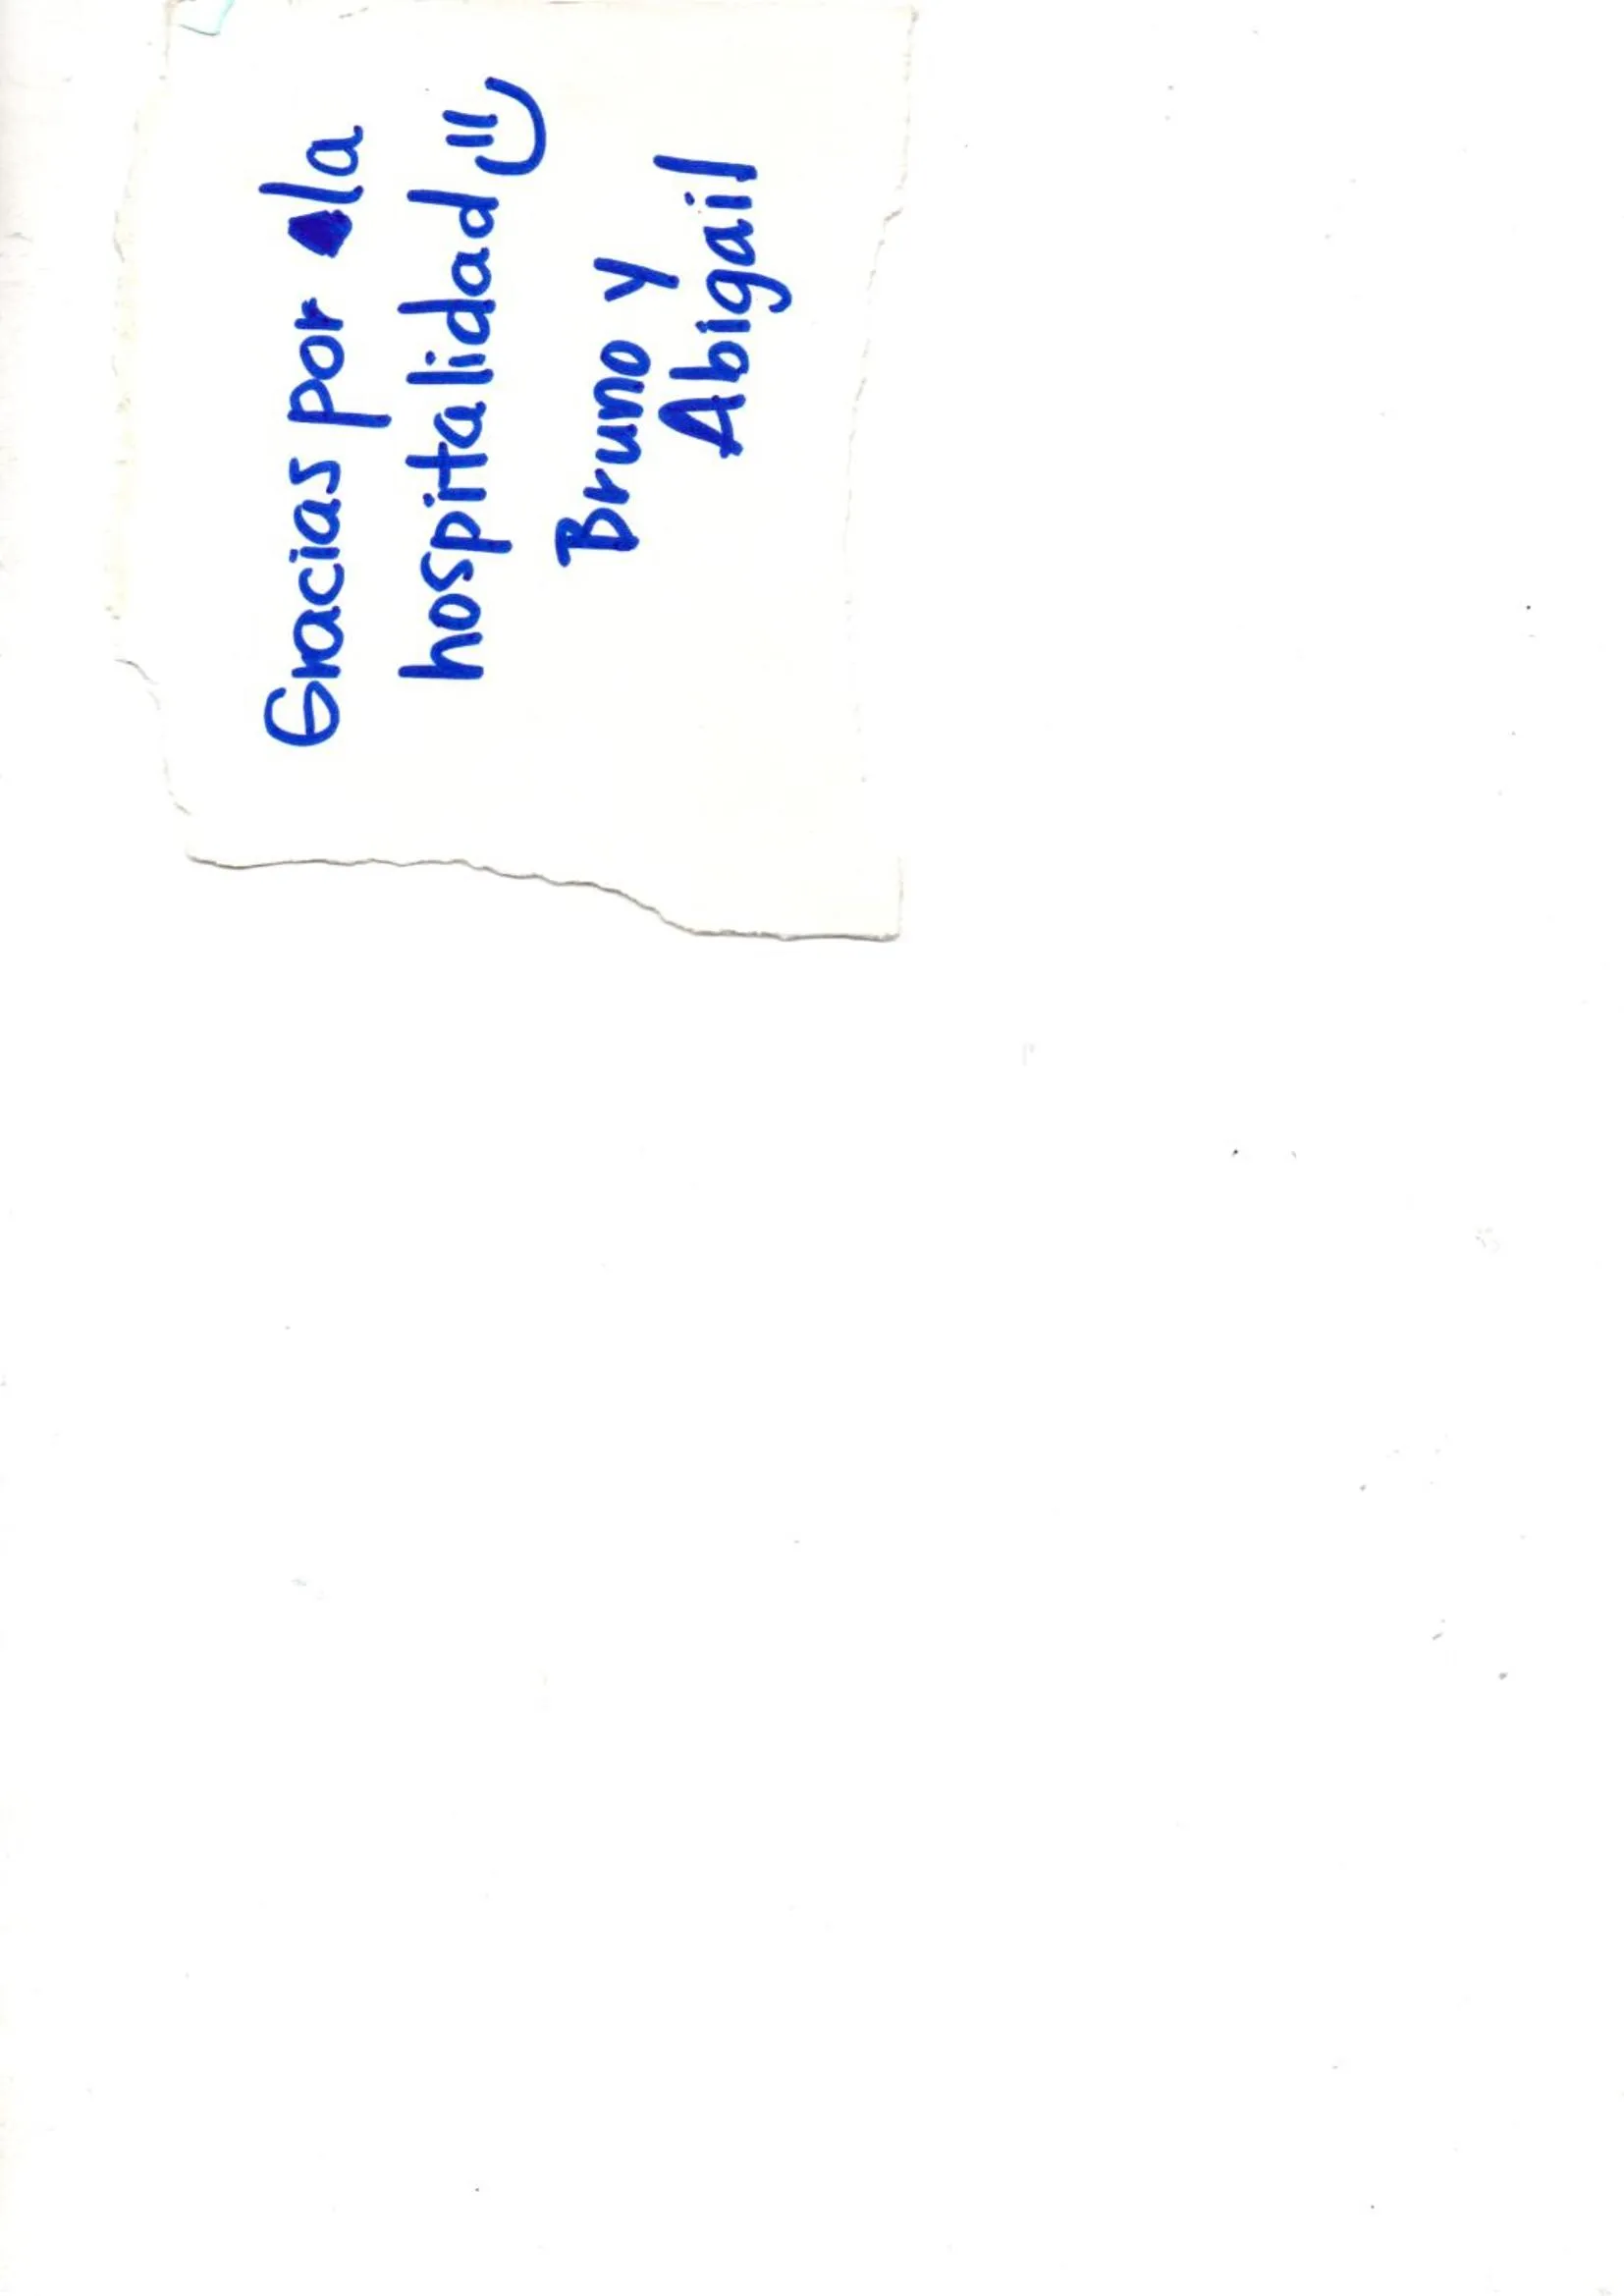 Gracias por la
hospitalidad
Bruno y
Abigail